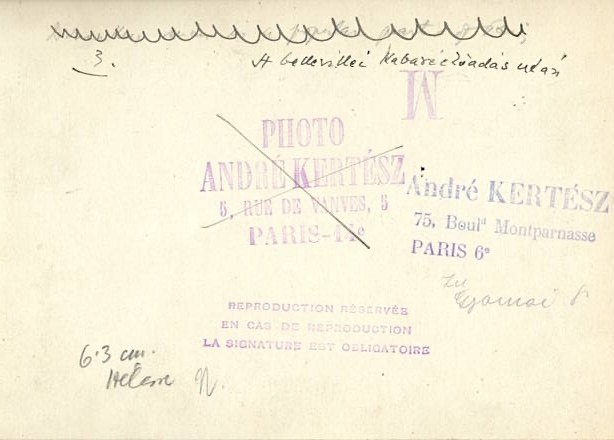 3.
A bellevillei Kabaréelőadás után
M
PHOTO
ANDRÉ KERTÉSZ
5, RUE DE VANVES, 5
PARIS-14e
André KERTÉSZ
75, Boul<sup>d</sup> Montparnasse
PARIS 6e
REPRODUCTION RÉSERVÉE
EN CAS DE REPRODUCTION
LA SIGNATURE EST OBLIGATOIRE
6·3 cm.